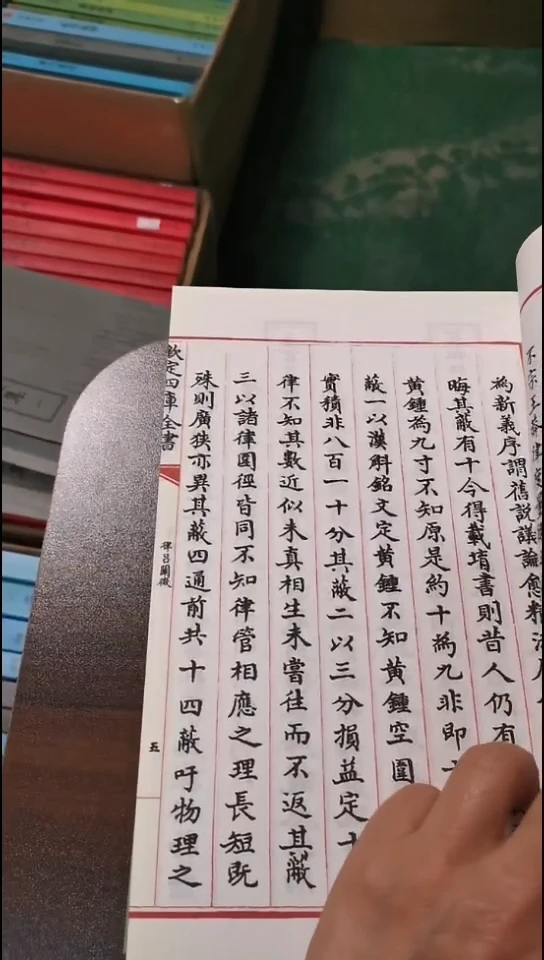 為新義序謂舊說議論愈精
晦其蔽有十今得載堉書則昔人仍有
黃鍾為九寸不知原是約十為九非即
蔽一以漢斛銘文定黃鍾不知黃鍾空圍
實積非八百一十分其蔽二以三分損益定十
律不知其數近似未真相生未嘗往而不返其蔽
三以諸律圍徑皆同不知律管相應之理長短既
殊則廣狹亦異其蔽四通前共十四蔽吁物理之
欽定四庫全書
律呂闡微
五